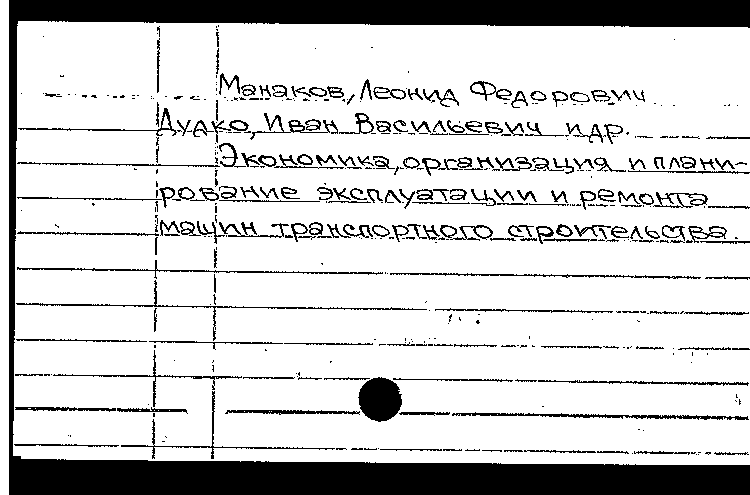 Манаков, Леонид Федорович
Дудко, Иван Васильевич и др.
Экономика, организация и плани-
рование эксплуатации и ремонта
машин транспортного строительства.